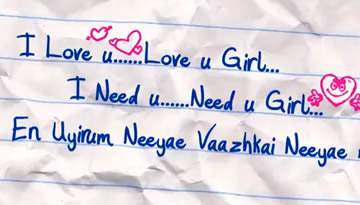 I Love u......Love u Girl...
I Need u......Need u Girl...
En Uyirum Neeyae Vaazhkai Neeyae